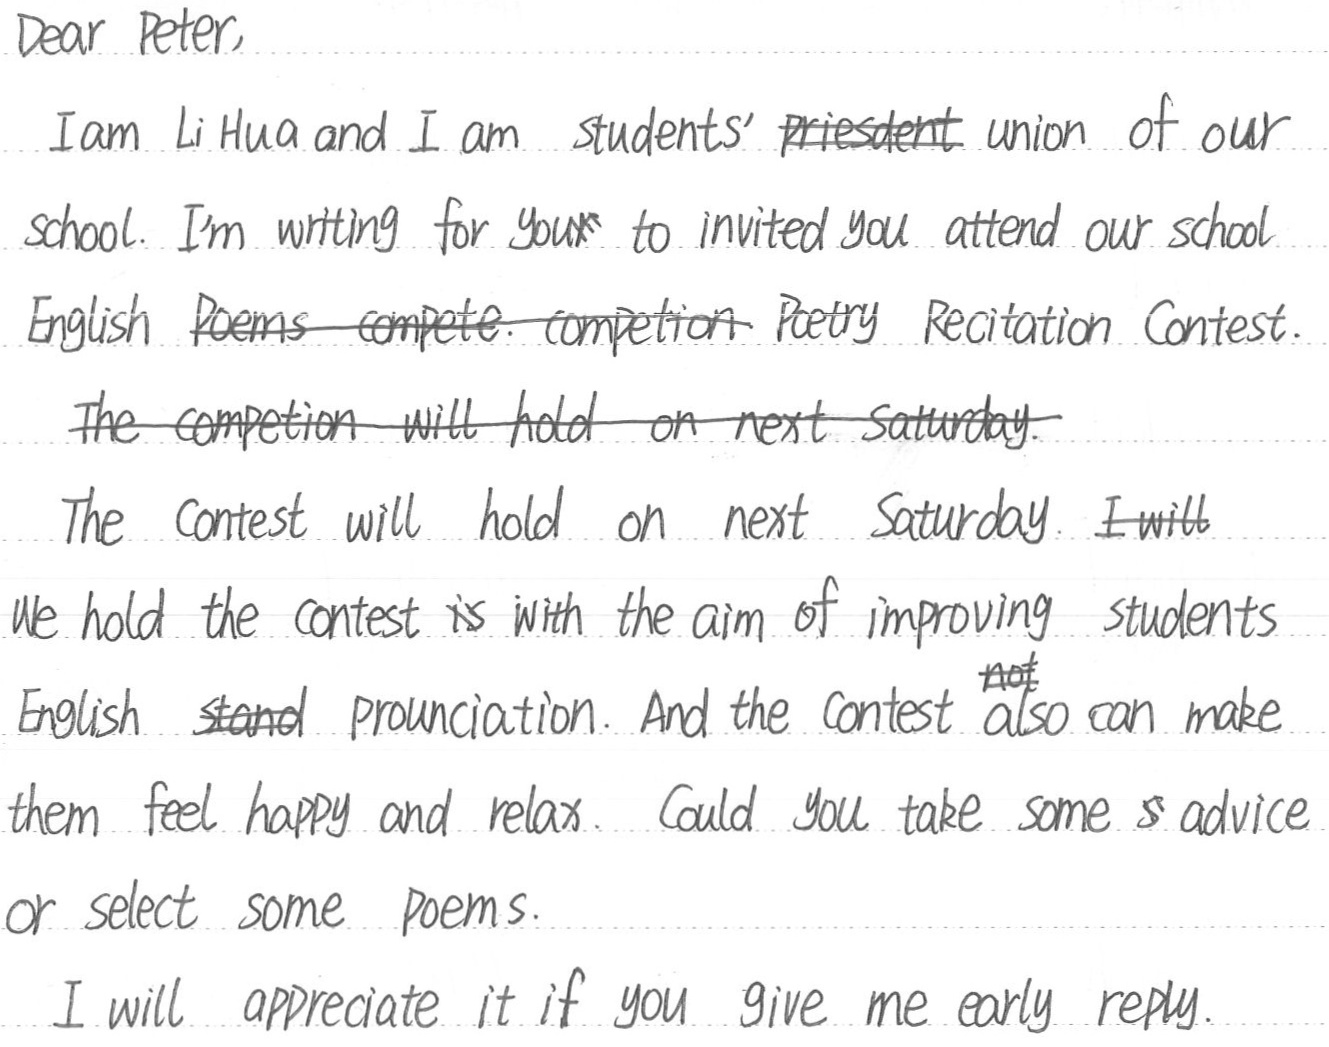 Dear Peter,
I am Li Hua and I am students' priesdent union of our
school. I'm writing for your to invited you attend our school
English Poems compete. competion Poetry Recitation Contest.
The competion will hold on next Saturday.
The Contest will hold on next Saturday. I will
We hold the contest is with the aim of improving students
English stand prounciation. And the Contest not also can make
them feel happy and relax. Could you take some s advice
or select some poems.
I will appreciate it if you give me early reply.